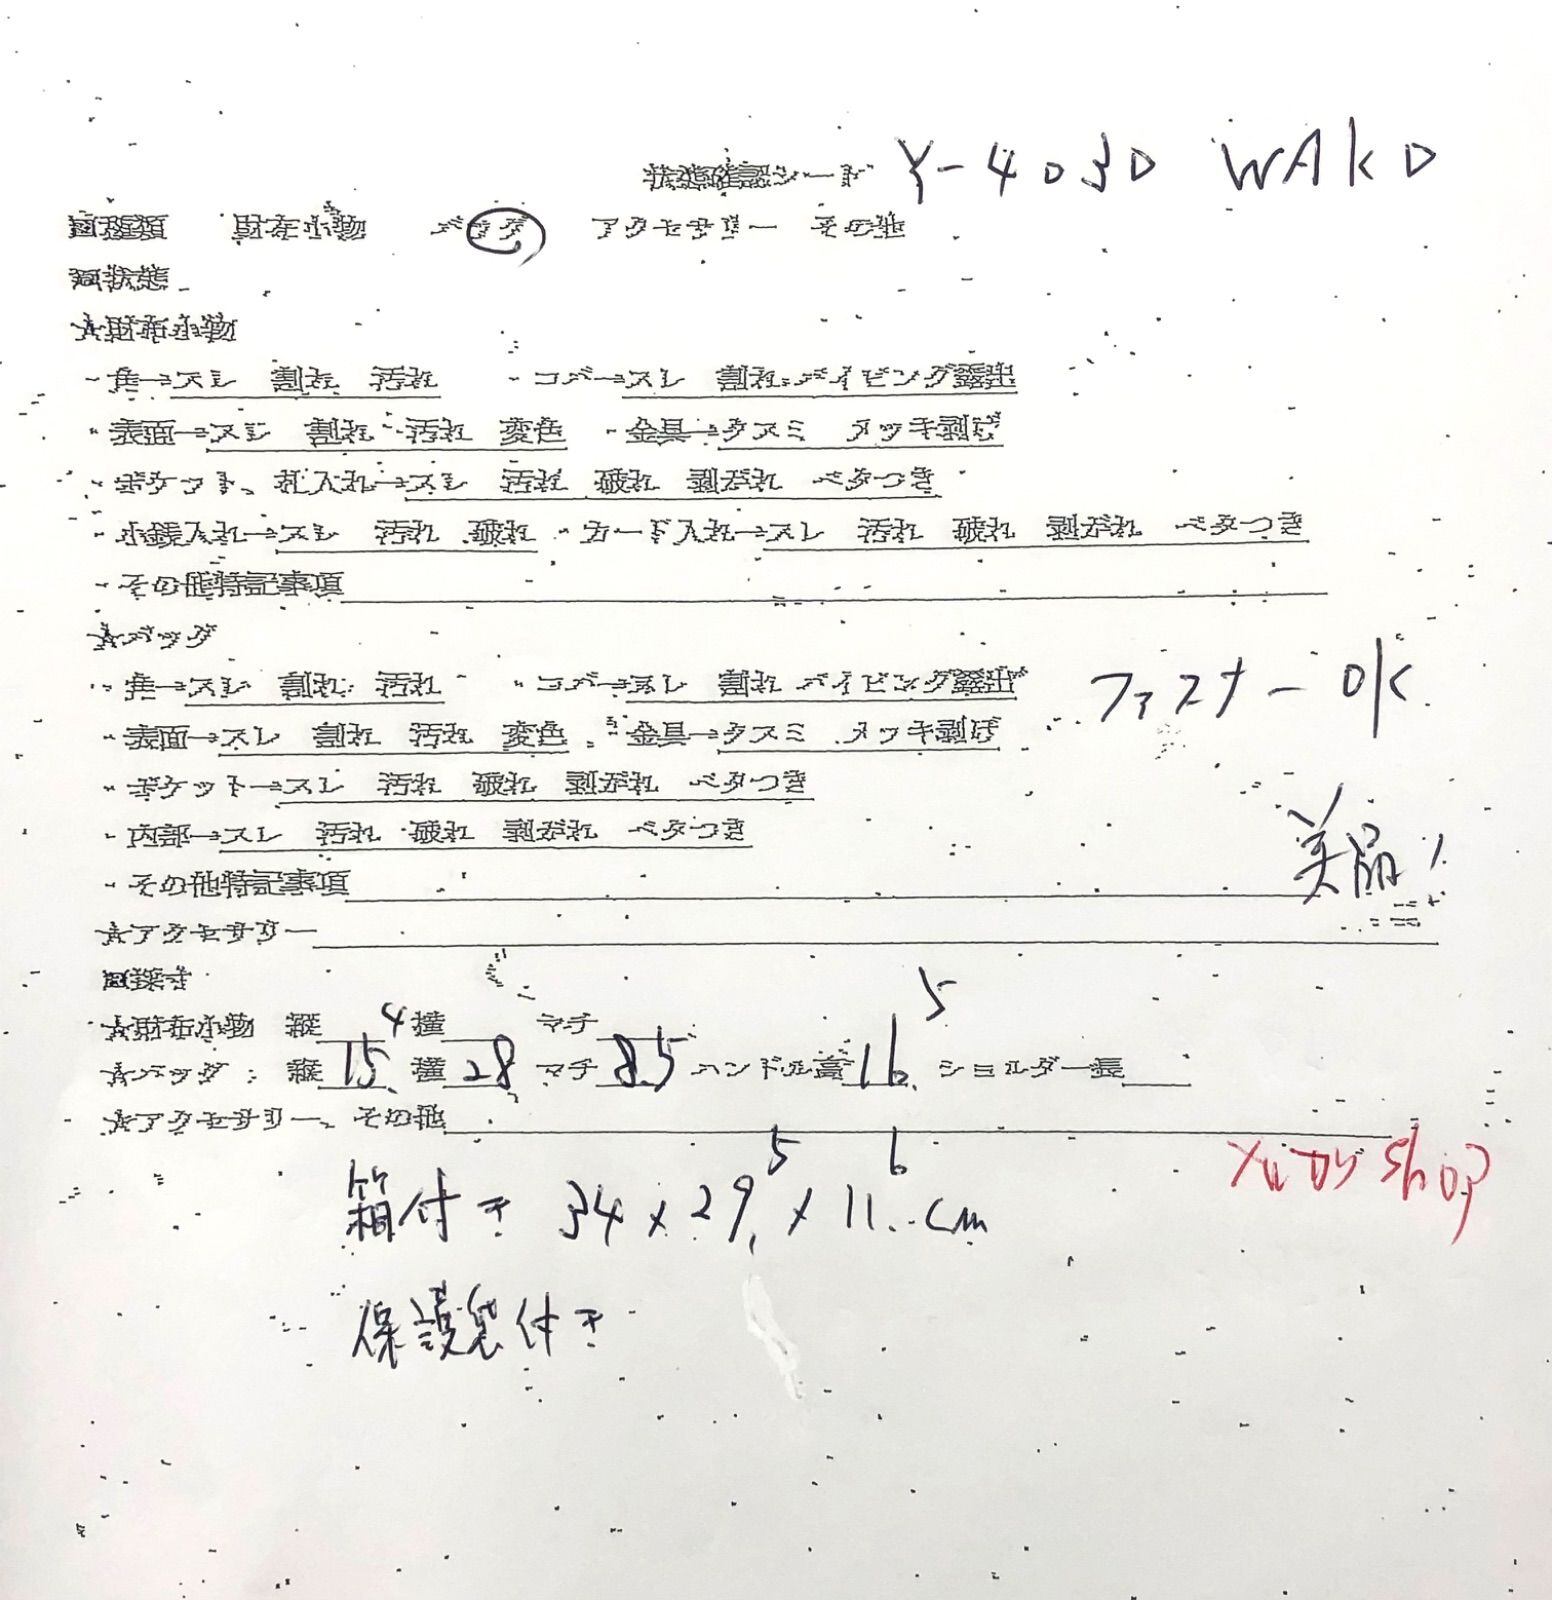 状態確認シート Y-4030 WAKO
□種類 財布小物 バッグ アクセサリー その他
□状態
☆財布小物
・角→スレ 割れ 汚れ ・コバ→スレ 割れ パイピング露出
・表面→スレ 割れ 汚れ 変色 ・金具→クスミ メッキ剥げ
・ポケット、札入れ→スレ 汚れ 破れ 剥がれ ベタつき
・小銭入れ→スレ 汚れ 破れ ・カード入れ→スレ 汚れ 破れ 剥がれ ベタつき
・その他特記事項
☆バッグ
・角→スレ 割れ 汚れ ・コバ→スレ 割れ パイピング露出 ファスナーOK
・表面→スレ 割れ 汚れ 変色 ・金具→クスミ メッキ剥げ
・ポケット→スレ 汚れ 破れ 剥がれ ベタつき
・内部→スレ 汚れ 破れ 剥がれ ベタつき
・その他特記事項 美品
☆アクセサリー
□採寸
☆財布小物 縦 横 マチ
☆バッグ 縦 15.4 横 28 マチ 8.5 ハンドル高 16.5 ショルダー長
☆アクセサリー、その他
箱付き 34×29.5×11.6cm
保護袋付き
shop